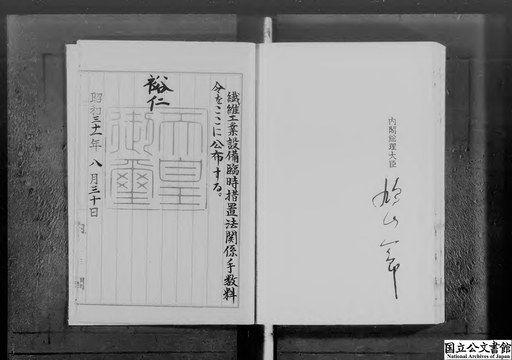 繊維工業設備臨時措置法関係手数料
令をここに公布する。
裕仁
天皇
御璽
昭和三十一年八月三十日
内閣総理大臣
鳩山一郎
国立公文書館
National Archives of Japan